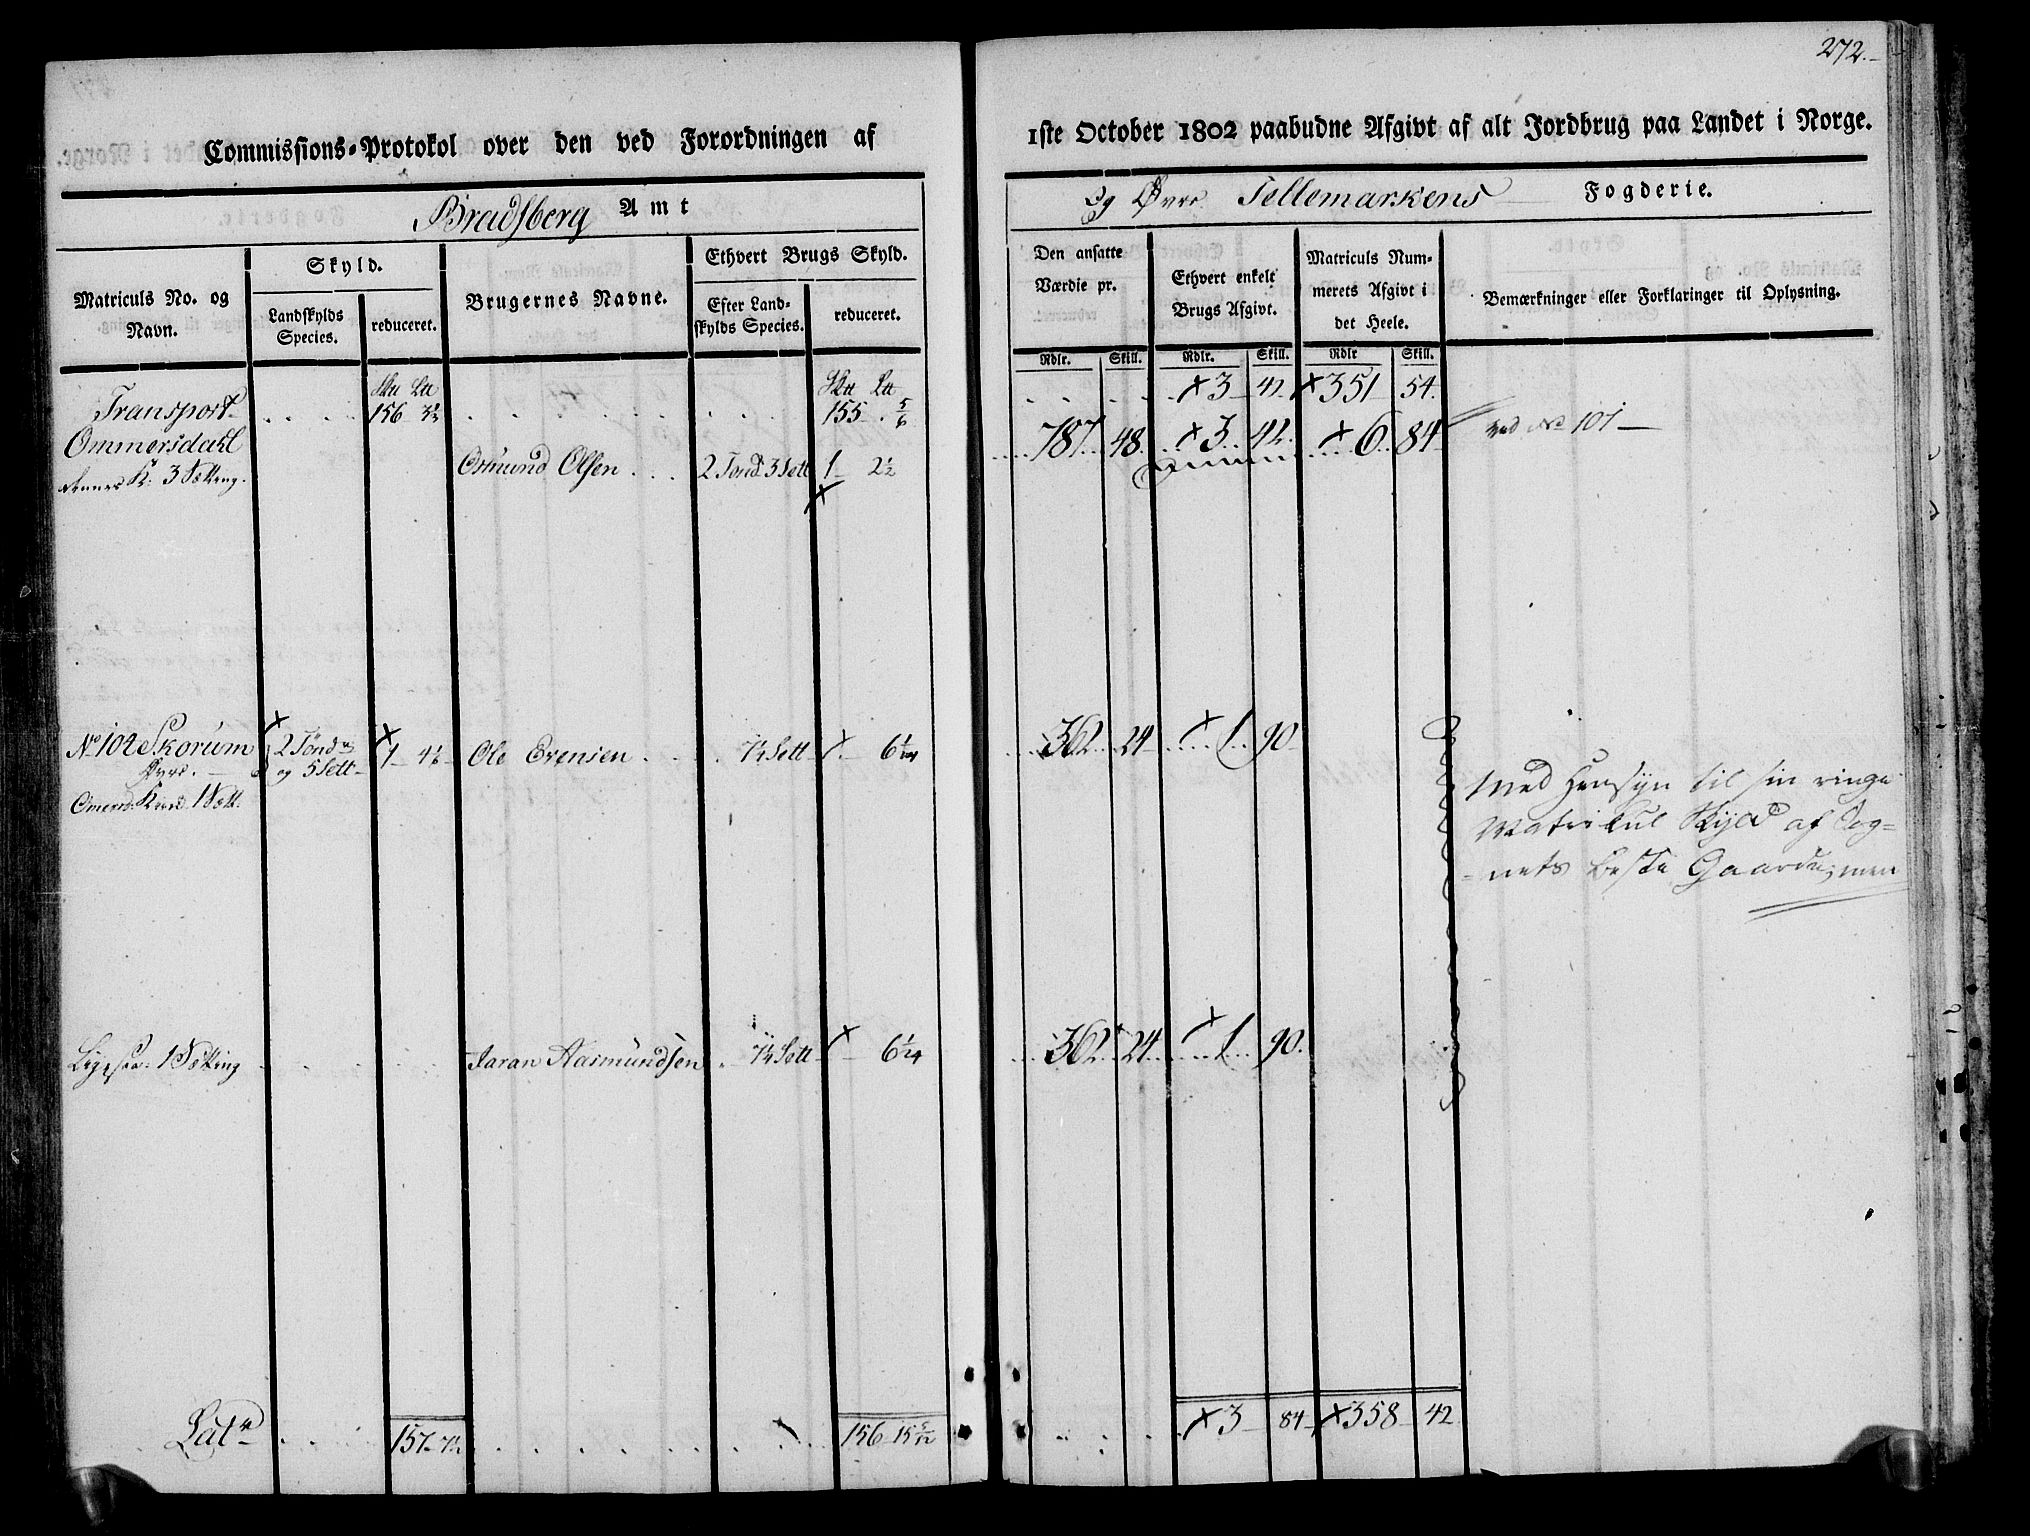 272.
Commissions-Protokol over den ved Forordningen af 1ste October 1802 paabudne Afgivt af alt Jordbrug paa Landet i Norge.
Bradsberg Amt
Og Øvre Tellemarkens Fogderie.
Matriculs No. og Navn.
Skyld.
Landskylds Species.
reduceret.
Brugernes Navne.
Ethvert Brugs Skyld.
Efter Landskylds Species.
reduceret.
Den ansatte Værdie pr.
Ethvert enkelt Brugs Afgivt.
Matriculs Nummerets Afgivt i det Heele.
Bemærkninger eller Forklaringer til Oplysning.
Rdlr. Skill. Rdlr. Skill. Rdlr Skill.
Transport 156 3½ 155 5/6 × 3 42 × 351 54.
Ommersdahl
3 Søtting. Osmund Olsen 2 Tond 3 Sett 1 2½ 787 48 × 3 42. × 6 84 ved No 101
No 102 Skorum 2 Tønder og 5 Sett 1 4½ Ole Evensen 7½ Sett 6 1/24 362 24 × 1 90
Øvre.
1 Søtt.
Med Hensyn til sin ringe
Matrikul Skyld af Sog=
=nets beste Gaarde, men
Ligesaa 1 Søtting Jaran Aasmundsen 7½ Sett 6 1/24 362 24 × 1 90.
Lat 157 7½ 156 15 5/12 × 3 84 × 358 42